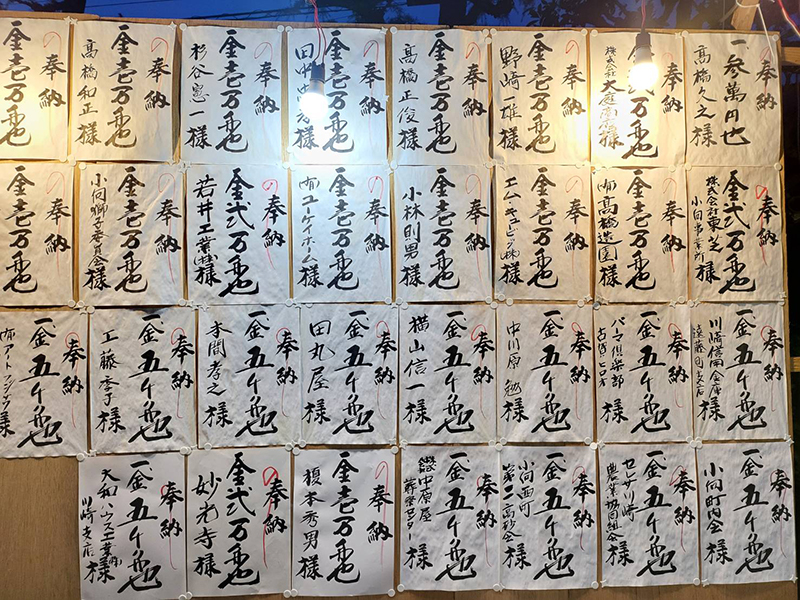 の奉納
一参萬円也
高橋久之様
の奉納
金壱万円也
株式会社
様
の奉納
金壱万円也
野崎一雄様
の奉納
金壱万円也
高橋正俊様
の奉納
金壱万円也
田中
様
の奉納
金壱万円也
杉谷憲一様
の奉納
金壱万円也
高橋和正様
の奉納
金壱万円也
の奉納
金弐万円也
株式会社東芝
小向事業所様
の奉納
金壱万円也
(有)高橋造園様
の奉納
金壱万円也
様
の奉納
金壱万円也
小林則男様
の奉納
金壱万円也
(有)ユーケイホーム様
の奉納
金弐万円也
若井工業㈱様
の奉納
金壱万円也
小向獅子委員会様
の奉納
金壱万円也
の奉納
一金五千円也
川崎信用金庫
遠藤町支店様
の奉納
一金五千円也
パーマ倶楽部
様
の奉納
一金五千円也
中川原 勉様
の奉納
一金五千円也
横山信一様
の奉納
一金五千円也
田丸屋様
の奉納
一金五千円也
本間孝之様
の奉納
一金五千円也
工藤 様
の奉納
一金五千円也
(有)アート
様
の奉納
一金五千円也
小向町内会様
の奉納
一金五千円也
セレサ川崎
農業協同組合様
の奉納
一金五千円也
小向西町
第二高砂会様
の奉納
一金五千円也
中原屋
様
の奉納
金壱万円也
榎本秀男様
の奉納
金弐万円也
妙光寺様
の奉納
一金五千円也
大和ハウス工業㈱
川崎支店様